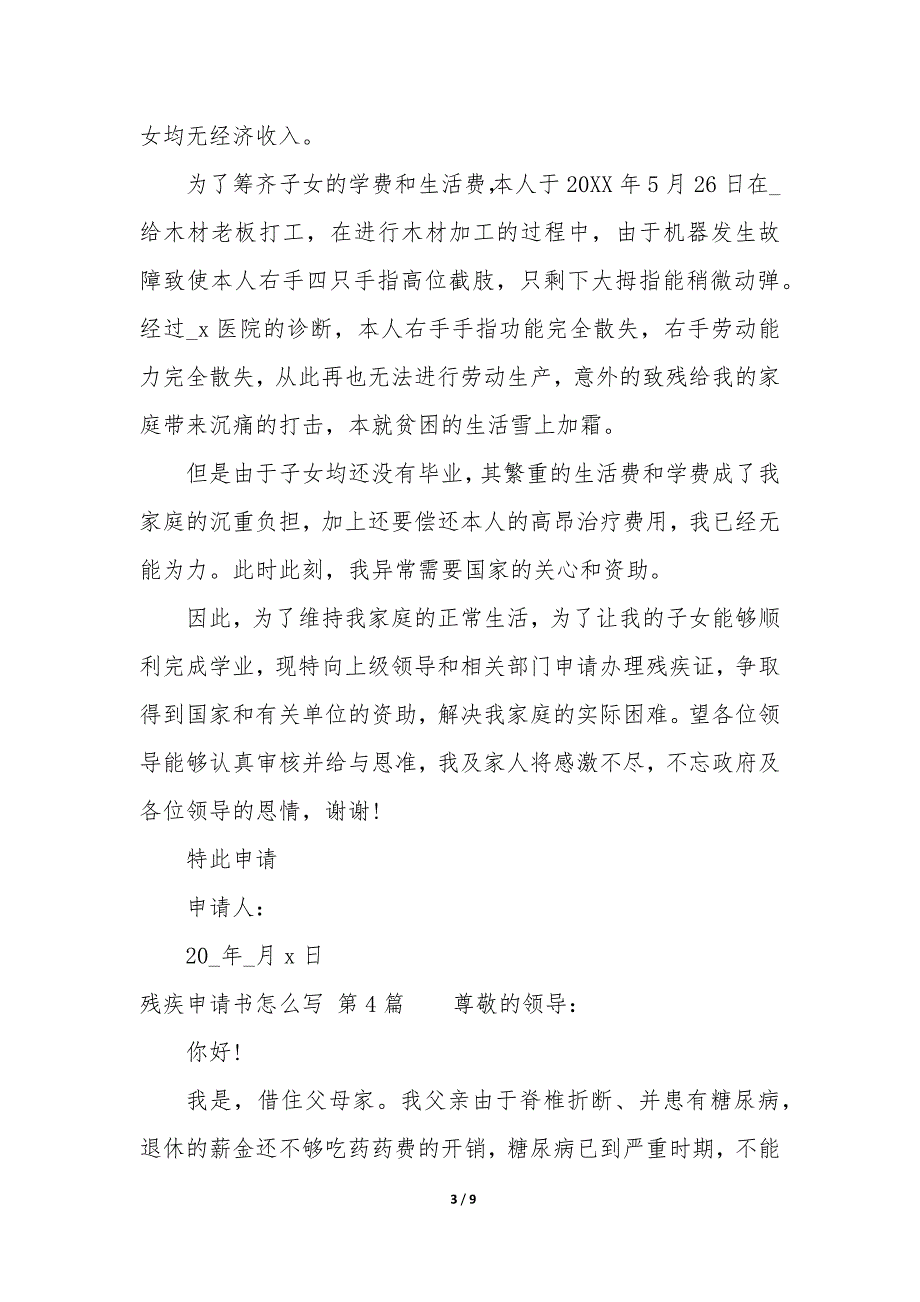 女均无经济收入。
为了筹齐子女的学费和生活费,本人于 20XX 年 5 月 26 日在_
给木材老板打工，在进行木材加工的过程中，由于机器发生故
障致使本人右手四只手指高位截肢，只剩下大拇指能稍微动弹。
经过_x 医院的诊断，本人右手手指功能完全散失，右手劳动能
力完全散失，从此再也无法进行劳动生产，意外的致残给我的家
庭带来沉痛的打击，本就贫困的生活雪上加霜。
但是由于子女均还没有毕业，其繁重的生活费和学费成了我
家庭的沉重负担，加上还要偿还本人的高昂治疗费用，我已经无
能为力。此时此刻，我异常需要国家的关心和资助。
因此，为了维持我家庭的正常生活，为了让我的子女能够顺
利完成学业，现特向上级领导和相关部门申请办理残疾证，争取
得到国家和有关单位的资助，解决我家庭的实际困难。望各位领
导能够认真审核并给与恩准，我及家人将感激不尽，不忘政府及
各位领导的恩情，谢谢!
特此申请
申请人：
20_年_月 x 日
残疾申请书怎么写 第 4 篇 尊敬的领导：
你好!
我是，借住父母家。我父亲由于脊椎折断、并患有糖尿病，
退休的薪金还不够吃药药费的开销，糖尿病已到严重时期，不能
3 / 9